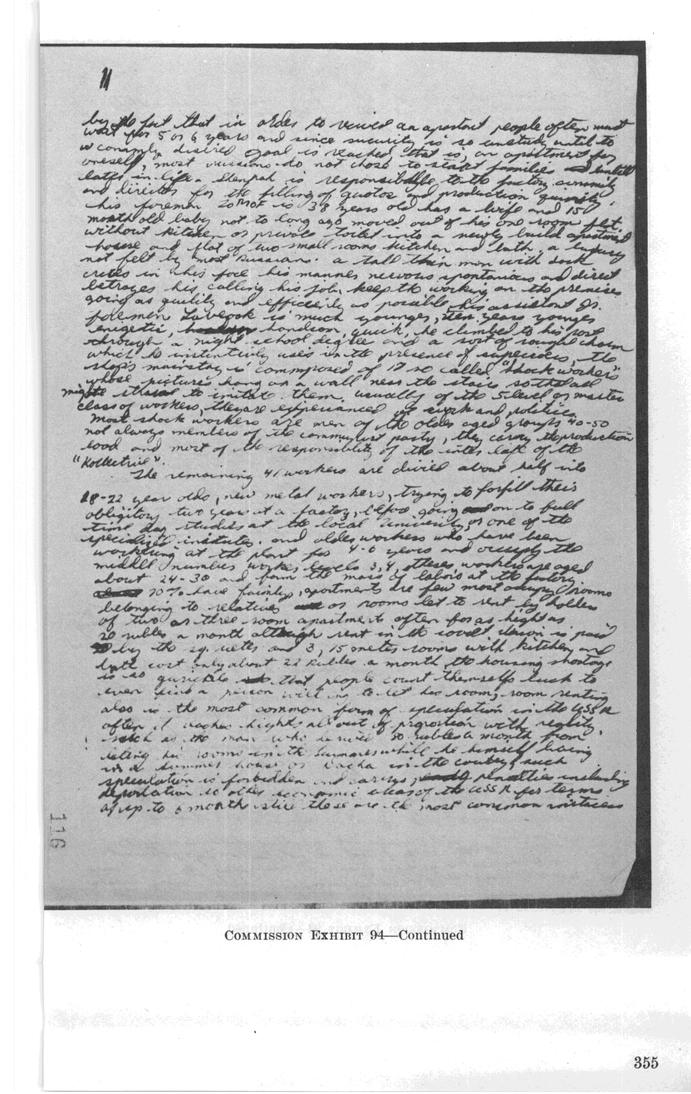 11
by the fact that in order to recived an apartment people often must
wait for 5 or 6 years and since security is so unstade until to
a conanply disired goal is reached, that is, an apartment for
oneself, most russians do not chose to start families until
later in life. Stenpah is responsible to the factory
and director for the filling of quotos and production quanity,
his foreman is 38 years old has a wife and 15
month old baby not to long ago moved out of his one room flat
without kitchen or private toilet into a newly build apartment
house and flat of two small rooms kitchen and bath a luxury
not felt by most russians. a tall thin man with dark
creses in his face his manner nervous spontanious and direct
betrayes his calling his job, keep the working on the premises
going as quikly and efficenily as possible, his assistent Jr.
foreman Lavrook is much younger, ten years younger
enegetic, handsom, quick, he climbed to his post
through a night school degree and a sort of rough charm
which he instintivly uses in the presence of superiors, the
shop's mainstay is commposed of 17 so called "shock workers"
whose pictures hang on a wall near the stairs so that all
might strive to imitate them. usually of the 5 level or master
class of workers, they are experianced in work and politics.
Most shock workers are men of the older aged groups 40-50
not always members of the communist party, they carray the production
load and most of the responsiblity of the enter life of the
"Kollective".
The remaining 41 workers are divied about half into
18-22 year olds, new metal workers, trying to forfill their
obligitory two year at a factory, before going on to full
time day studies at the local University or one of the
specialized institutes. and older workers who have been
working at the plant for 4-6 years and occupy the
middell number worker levels 3, 4, these workers are aged
about 24-30 and form the mass of labors at the factory.
70% have familys, apartments are few most occupy rooms
belonging to relatives or rooms let to rent by holders
of two or three room apartments often for as height as
20 rubles a month although rent in the soviet union is paid
by the sq. meter and 3, 15 meter rooms with kitchen and
bath cost only about 22 rubles a month, the housing shortage
is so that people count themselfs luck to
even find a person willing to let his room, room renting
also is the most common form of speculation in the USSR
often it reaches hights all out of proportion with reality,
such as the man who derived 80 rubles a month from
leting his rooms in the summer while he himself living
in a summer house or Dacha in the country, such
speculation is forbidden and carrys penalties including
deportation to other economic areas of the USSR for terms
of up to 6 months still these are the most common instences
116
COMMISSION EXHIBIT 94—Continued
355